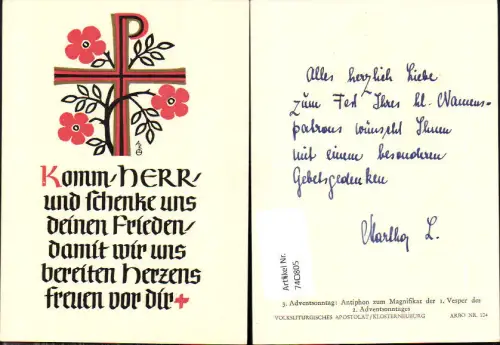 Komm HERR
und schenke uns
deinen Frieden
damit wir uns
bereiten Herzens
freuen vor dir
Alles herzlich Liebe
zum Fest Ihres hl. Namens-
patrons wünscht Ihnen
mit einem besonderen
Gebetsgedenken
L.
Artikel Nr.
740805
3. Adventsonntag: Antiphon zum Magnifikat der 1. Vesper des
2. Adventsonntages
VOLKSLITURGISCHES APOSTOLAT/KLOSTERNEUBURG ARBO NR. 124